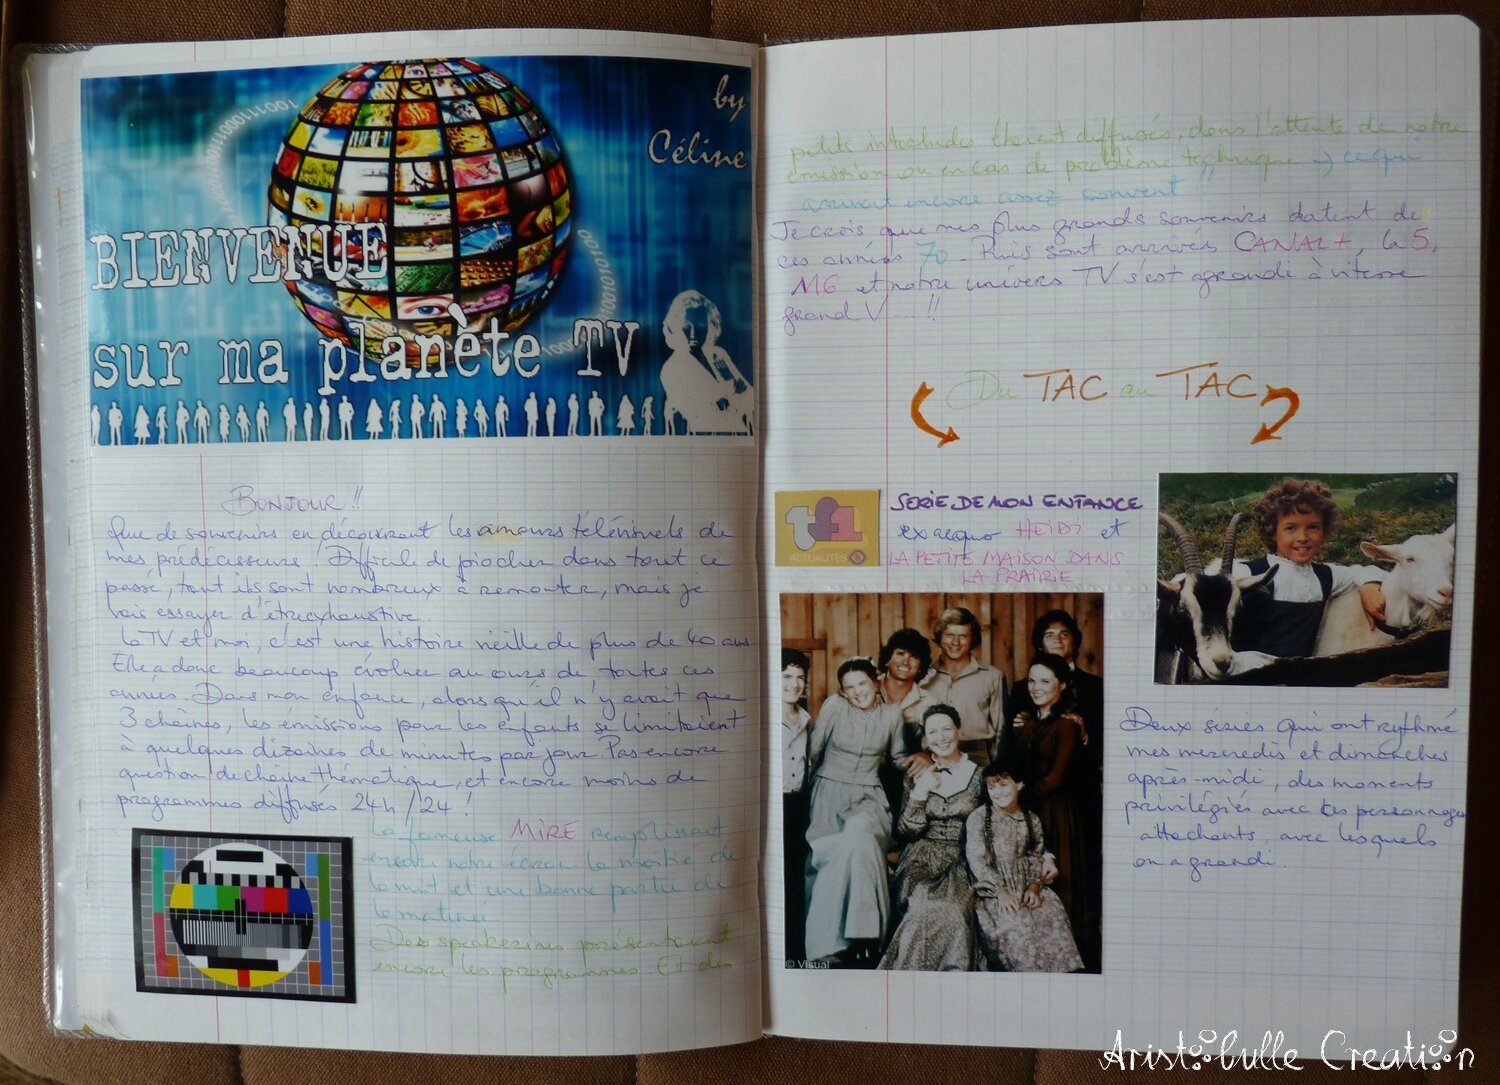 by
Céline
BIENVENUE
sur ma planète TV
BONJOUR !!
Que de souvenirs en découvrant les amours télévisuels de
mes prédécesseurs ! Difficile de piocher dans tout ce
passé, tant ils sont nombreux à remonter, mais je
vais essayer d'être exhaustive.
La TV et moi, c'est une histoire vieille de plus de 40 ans
Elle a donc beaucoup évoluer au cours de toutes ces
années. Dans mon enfance, alors qu'il n'y avait que
3 chaînes, les émissions pour les enfants se limitaient
à quelques dizaines de minutes par jour. Pas encore
question de chaîne thématique, et encore moins de
programmes diffusés 24h/24 !
La fameuse MIRE remplissait
encore notre écran la moitié de
la nuit et une bonne partie de
la matinée
Des speakerines présentaient
encore les programmes. Et des
petits interludes étaient diffusés, dans l'attente de notre
émission ou en cas de problème technique → ce qui
arrivait encore assez souvent !!
Je crois que mes plus grands souvenirs datent de
ces années 70. Puis sont arrivés CANAL+, la 5,
M6 et notre univers TV s'est agrandi à vitesse
grand V ... !!
Du TAC au TAC
tf1
ACTUALITES
SERIE DE MON ENFANCE
ex aequo HEIDI et
LA PETITE MAISON DANS
LA PRAIRIE
Deux séries qui ont rythmé
mes mercredis et dimanches
après-midi, des moments
privilégiés avec des personnages
attachants, avec lesquels
on a grandi.
© Visual
Aristobulle Creation